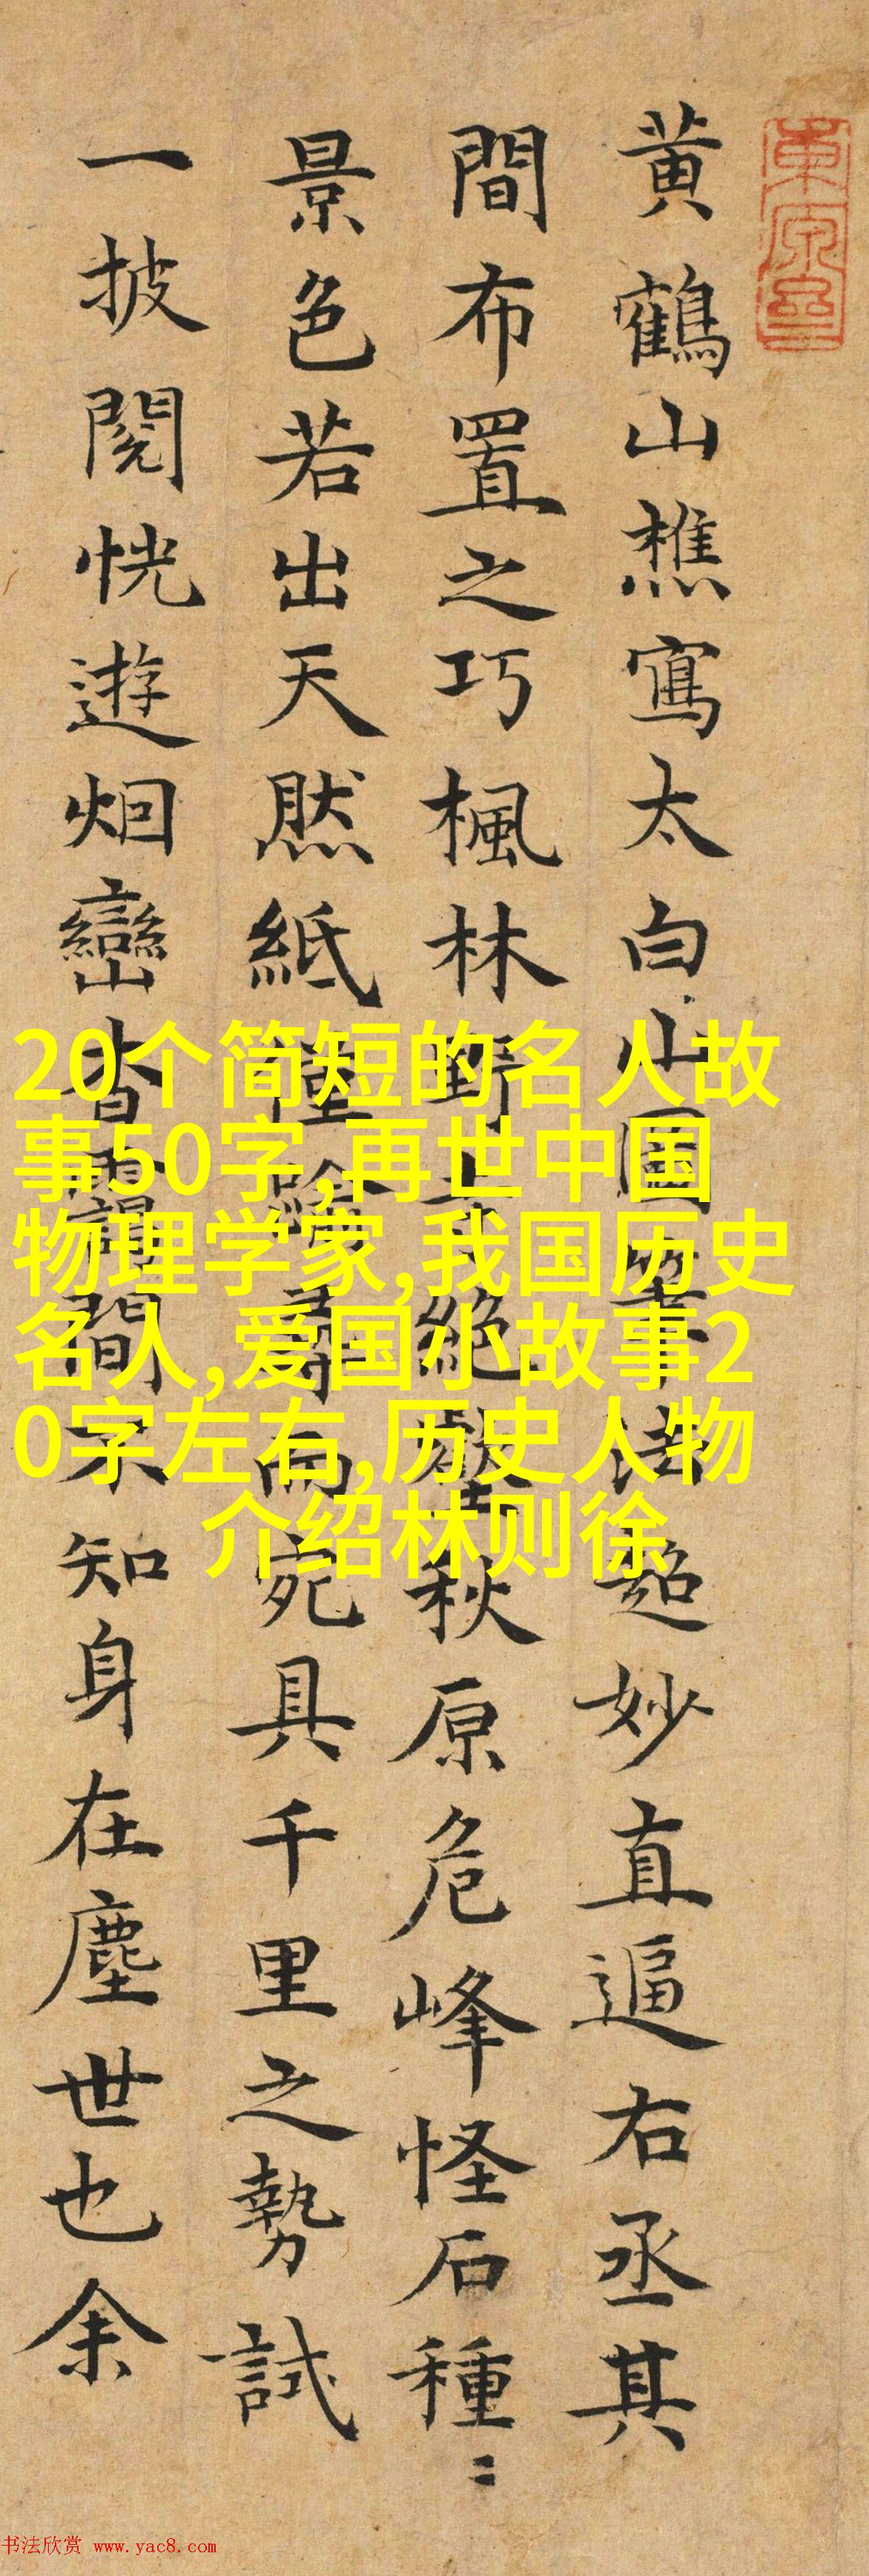 黄鶴山樵寫太白山圖筆法超妙直逼右丞其
間布置之巧楓林野寺絕壑秋原危峰怪石種〻
景色若出天然紙僅踰尋而宛具千里之勢試
一披閱恍遊烟巒杳靄間不知身在塵世也余
20个简短的名人故
事50字,再世中国
物理学家,我国历史
名人,爱国小故事2
0字左右,历史人物
介绍林则徐
书法欣赏 www.yac8.com